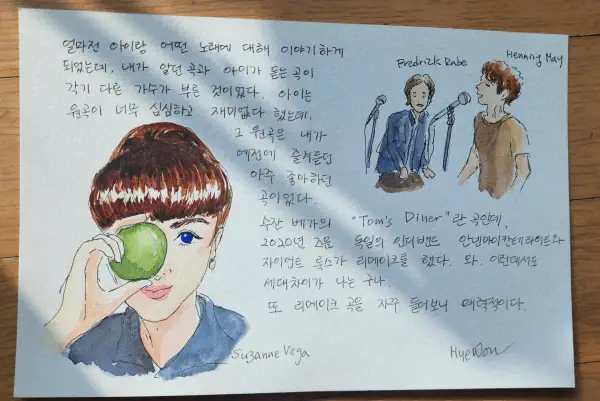 얼마전 아이랑 어떤 노래에 대해 이야기하게
되었는데, 내가 알던 곡과 아이가 듣는 곡이
각기 다른 가수가 부른 것이었다. 아이는
원곡이 너무 심심하고 재미없다 했는데,
그 원곡은 내가
예전에 즐겨듣던
아주 좋아하던
곡이었다.
수잔 베가의 "Tom's Diner"란 곡인데,
2020년 즈음 독일의 인디밴드 안넨마이칸테라이트와
자이언트 룩스가 리메이크를 했다. 와. 이런데서도
세대차이가 나는 구나.
또 리메이크 곡을 자꾸 들어보니 매력적이다.
Fredrick Rabe
Henning May
Suzanne Vega
HyeWon